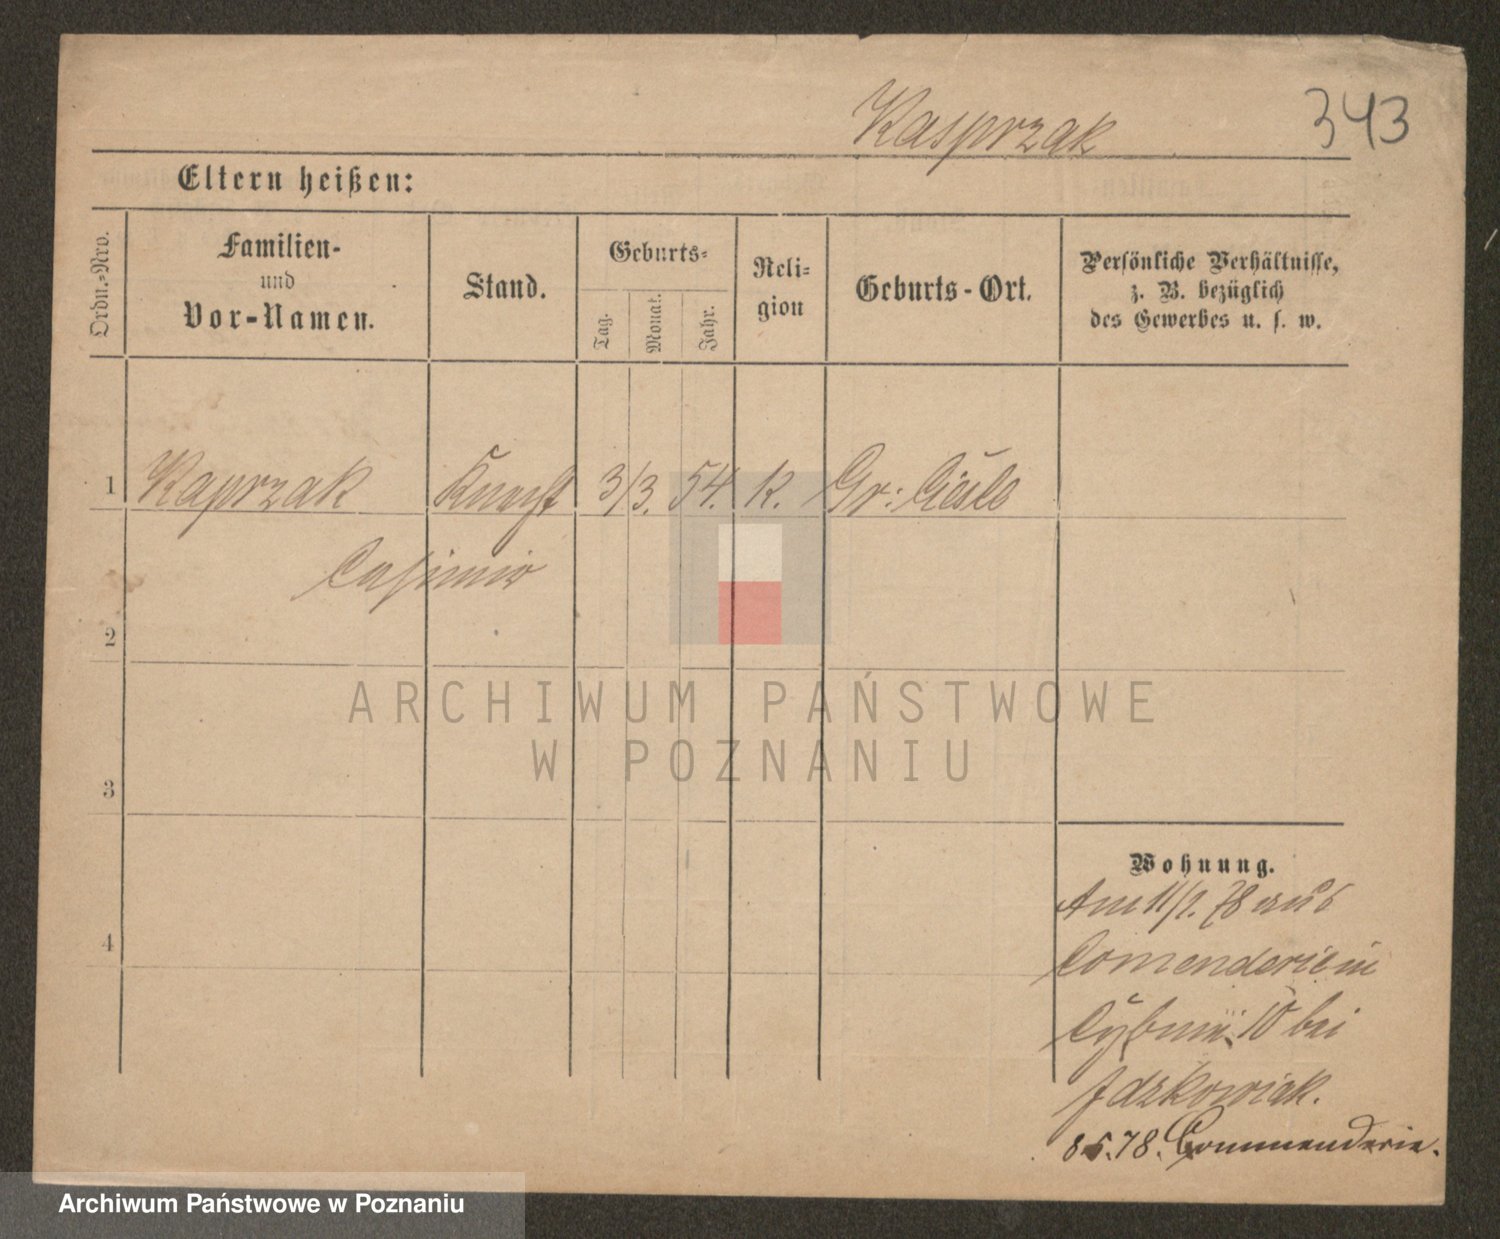 Kasprzak 343
Eltern heißen:
Ordn.-Nro.
Familien-
und
Vor-Namen.
Stand.
Geburts-
Tag.
Monat.
Jahr.
Reli-
gion
Geburts-Ort.
Persönliche Verhältnisse,
z. B. bezüglich
des Gewerbes u. s. w.
1 Kaprzak Knecht 3/3. 54. k. Gr:
Casimir
2
3
4
Wohnung.
Am 11/1. 78 aus
Comenderie in
10 bei
Idzkowiak.
8.5.78. Commenderie.
ARCHIWUM PAŃSTWOWE
W POZNANIU
Archiwum Państwowe w Poznaniu